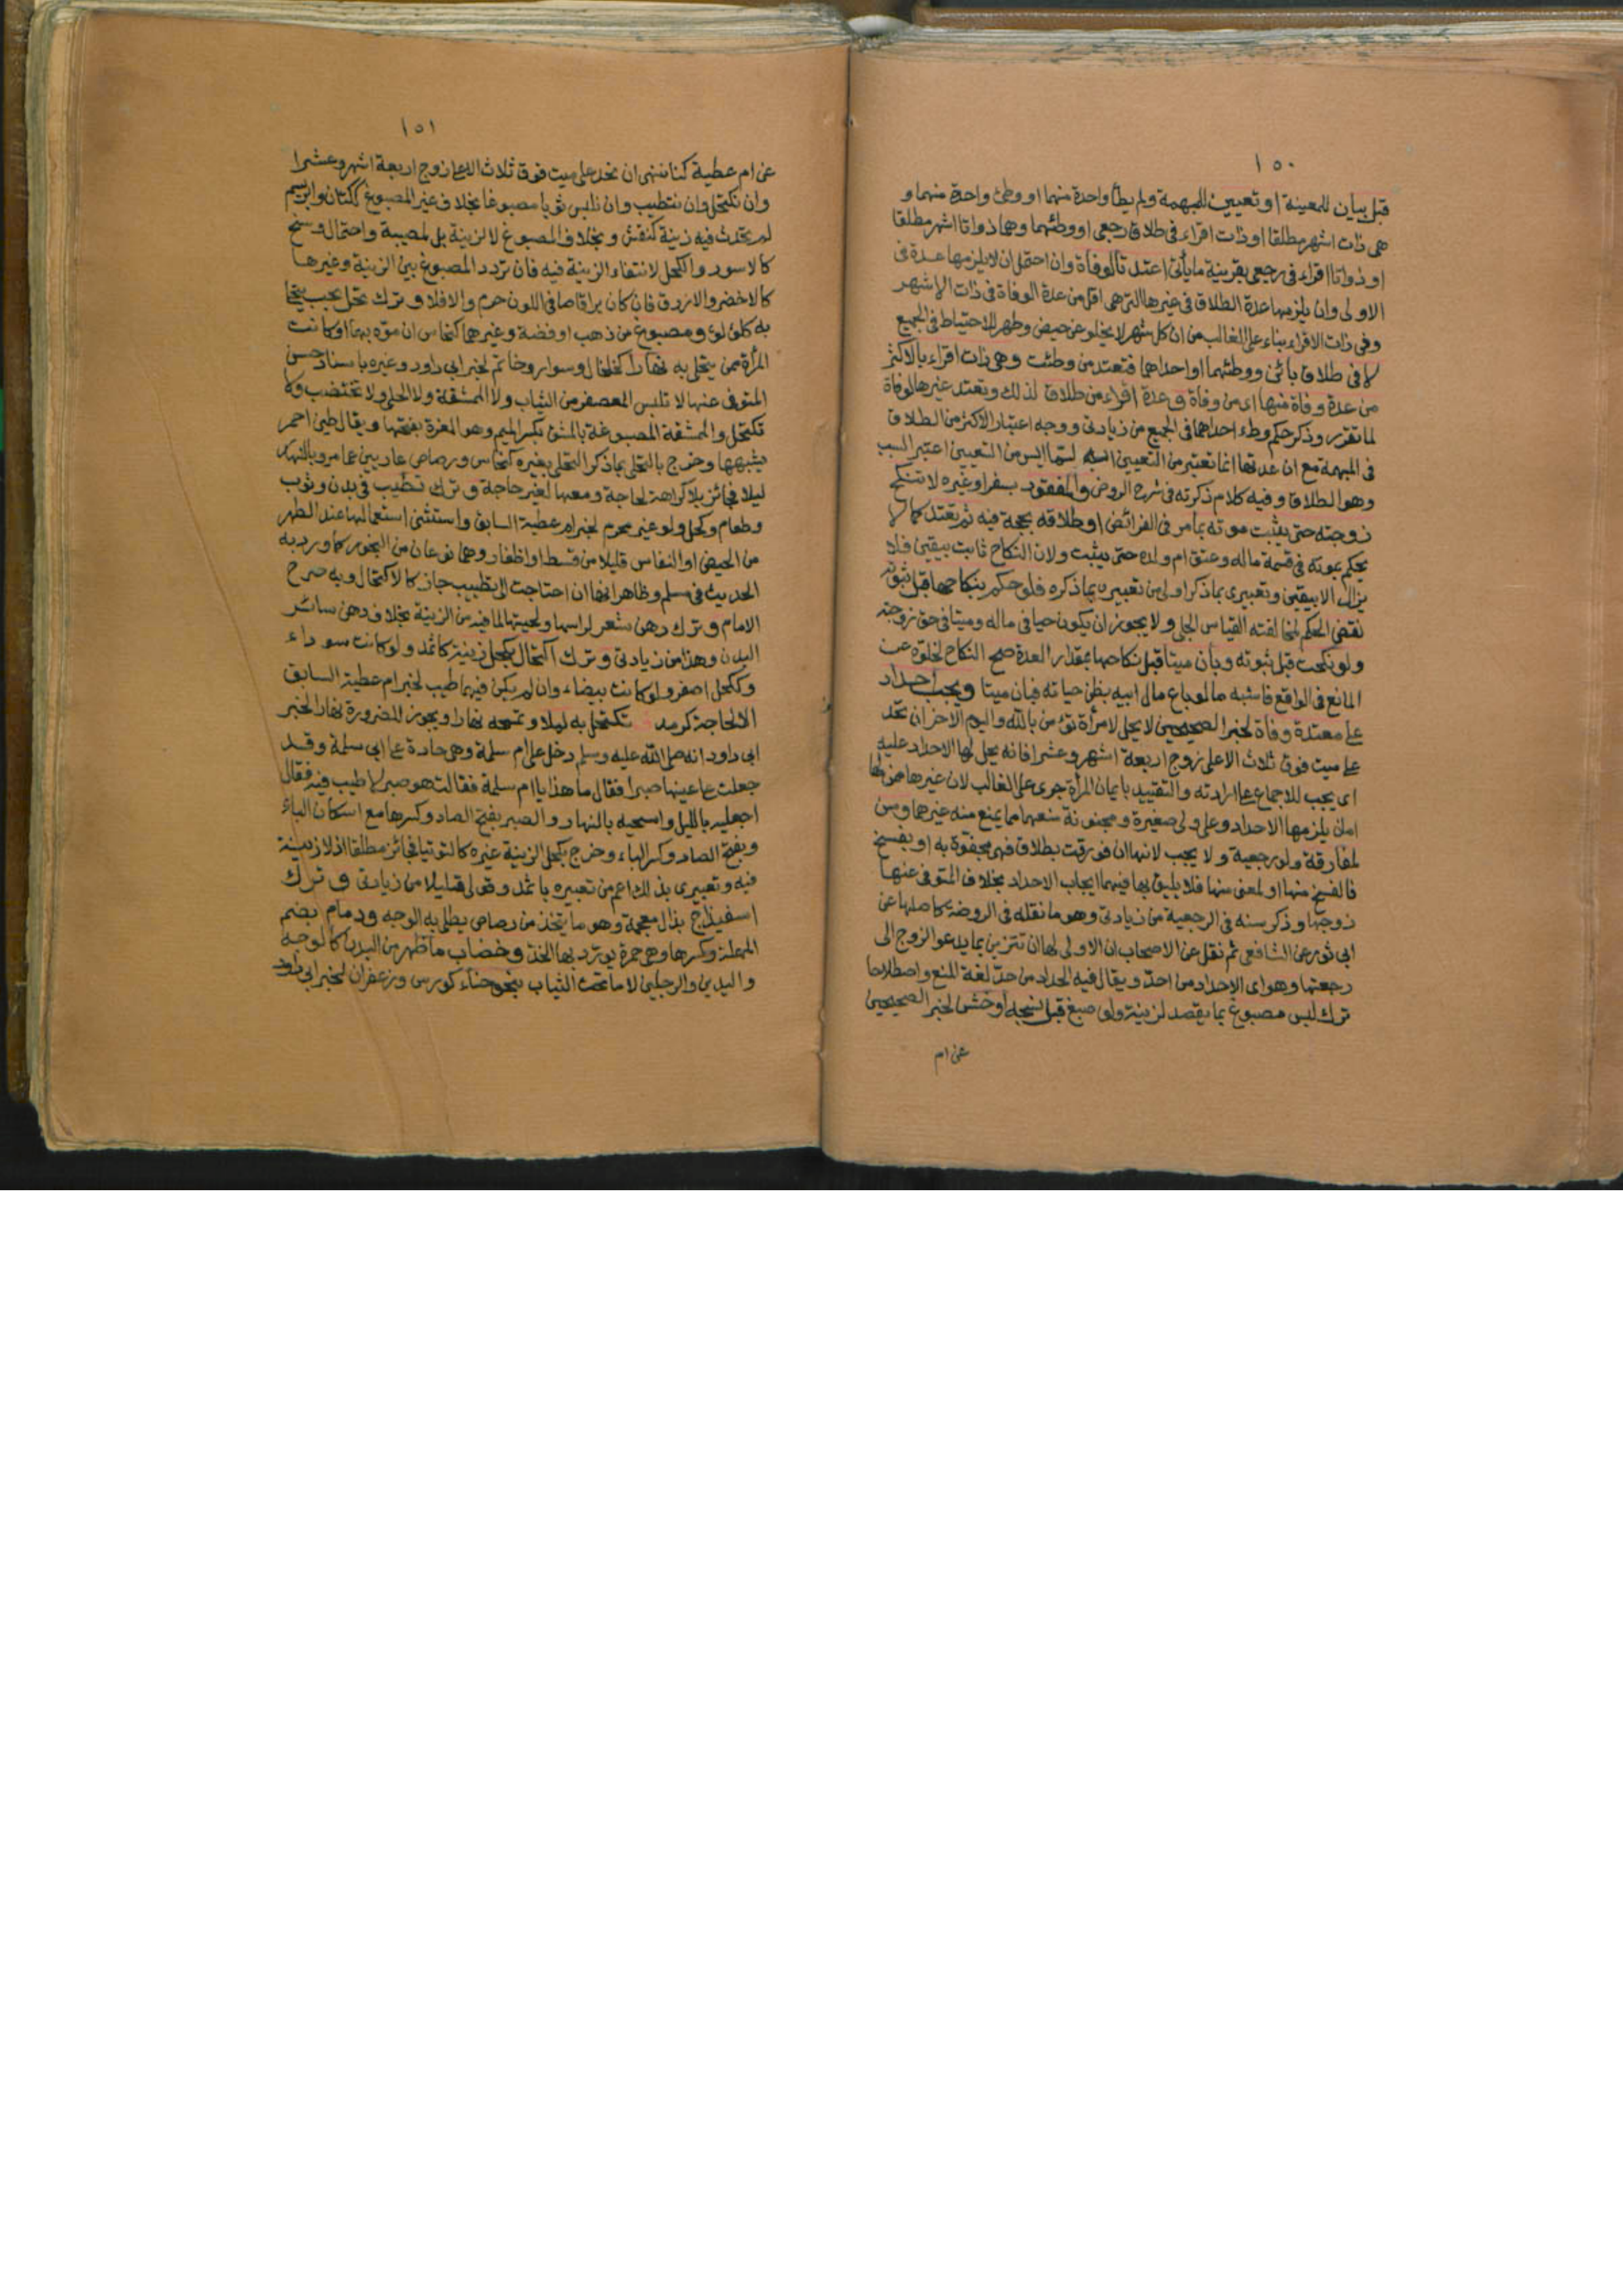 ١٥٠
قبل بيان للمعينة او تعيين للمبهمة ولم يطأ واحدة منهما او وطئ واحدة منهما و
هى ذات اشهر مطلقا او ذات اقراء فى طلاق رجعى او وطئهما وهما ذواتا اشهر مطلقا
او ذواتا اقراء فى رجعى بقرينة ما يأتى اعتدتا لوفاة وان احتمل ان لا يلزمها عدة فى
الاولى وان يلزمها عدة الطلاق فى غيرها التى هى اقل من عدة الوفاة فى ذات الاشهر
وفى ذات الاقراء بناء على الغالب من ان كل شهر لا يخلو عن حيض وطهر للاحتياط فى الجميع
لا فى طلاق بائن ووطئهما او احداهما فتعتد من وطئت وهى ذات اقراء بالاكثر
من عدة وفاة منها اى من وفاة و عدة اقراء من طلاق لذلك وتعتد غيرها لوفاة
لما تقرر وذكر حكم وطء احداهما فى الجميع من زيادتى ووجه اعتبار الاكثر من الطلاق
فى المبهمة مع ان عدتها انما تعتبر من التعيين انه لما ايس من التعيين اعتبر السبب
وهو الطلاق وفيه كلام ذكرته فى شرح الروض والمفقود بسفر او غيره لا تنكح
زوجته حتى يثبت موته بما مر فى الفرائض او طلاقه بحجة فيه ثم تعتد كما لا
يحكم بموته فى قسمة ماله وعتق ام ولده حتى يثبت ولان النكاح ثابت بيقين فلا
يزال الا بيقين وتعبيرى بما ذكر اولى من تعبيره بما ذكره فلو حكم بنكاحها قبل ثبوته
نقض الحكم لمخالفته القياس الجلى ولا يجوز ان يكون حيا فى ماله وميتا فى حق زوجته
ولو نكحت قبل ثبوته وبان ميتا قبل نكاحها بمقدار العدة صح النكاح لخلوه عن
المانع فى الواقع فاشبه ما لو باع مال ابيه بظن حياته فبان ميتا ويجب احداد
على معتدة وفاة لخبر الصحيحين لا يحل لامرأة تؤمن بالله واليوم الاخر ان تحد
على ميت فوق ثلاث الا على زوج اربعة اشهر وعشرا فانه يحل لها الاحداد عليه
اى يجب للاجماع على ارادته والتقييد بايمان المرأة جرى على الغالب لان غيرها ممن لها
امان يلزمها الاحداد وعلى ولى صغيرة ومجنونة منعهما مما يمنع منه غيرهما وسن
لمفارقة ولو رجعية ولا يجب لانها ان فورقت بطلاق فهى مجفوة به او بفسخ
فالفسخ منها او لمعنى منها فلا يليق بها فيهما ايجاب الاحداد بخلاف المتوفى عنها
زوجها وذكر سنه فى الرجعية من زيادتى وهو ما نقله فى الروضة كاصلها عن
ابى ثور عن الشافعى ثم نقل عن الاصحاب ان الاولى لها ان تتزين بما يدعو الزوج الى
رجعتها وهو اى الاحداد من احد ويقال فيه الحداد من حد لغة المنع واصطلاحا
ترك لبس مصبوغ بما يقصد لزينة ولو صبغ قبل نسجه او خشن لخبر الصحيحين
عن ام
١٥١
عن ام عطية كنا ننهى ان نحد على ميت فوق ثلاث الا على زوج اربعة اشهر وعشرا
وان نكتحل وان نتطيب وان نلبس ثوبا مصبوغا بخلاف غير المصبوغ ككتان وابريسم
لم يحدث فيه زينة كنقش و بخلاف المصبوغ لا لزينة بل لمصيبة واحتمال وسخ
كالاسود والكحلى لانتفاء الزينة فيه فان تردد المصبوغ بين الزينة وغيرها
كالاخضر والازرق فان كان براقا صافى اللون حرم والا فلا و ترك تحل بحب يتحلى
به كلؤلؤ ومصبوغ من ذهب او فضة وغيرهما كنحاس ان موه بهما او كانت
المرأة ممن يتحلى به نهارا كخلخال وسوار وخاتم لخبر ابى داود وغيره باسناد حسن
المتوفى عنها لا تلبس المعصفر من الثياب ولا الممشقة ولا الحلى ولا تختضب ولا
تكتحل والممشقة المصبوغة بالمشق بكسر الميم وهو المغرة بفتحها ويقال طين احمر
يشبهها وخرج بالتحلى بما ذكر التحلى بغيره كنحاس ورصاص عاريين عما مر وبالنهار
ليلا فجائز بلا كراهة لحاجة ومعها لغير حاجة و ترك تطيب فى بدن وثوب
وطعام وكحل ولو غير محرم لخبر ام عطية السابق واستثنى استعمالها عند الطهر
من الحيض او النفاس قليلا من قسط او اظفار وهما نوعان من البخور كما ورد به
الحديث فى مسلم وظاهر انها ان احتاجت الى تطييب جاز كالاكتحال وبه صرح
الامام و ترك دهن شعر لراسها ولحيتها لما فيه من الزينة بخلاف دهن سائر
البدن وهذا من زيادتى و ترك اكتحال بكحل زينة كاثمد ولو كانت سوداء
وككحل اصفر ولو كانت بيضاء وان لم يكن فيهما طيب لخبر ام عطية السابق
الا لحاجة كرمد تكتحل به ليلا وتمسحه نهارا ويجوز للضرورة نهارا لخبر
ابى داود انه صلى الله عليه وسلم دخل على ام سلمة وهى حادة على ابى سلمة وقد
جعلت على عينها صبرا فقال ما هذا يا ام سلمة فقالت هو صبر لا طيب فيه فقال
اجعليه بالليل وامسحيه بالنهار والصبر بفتح الصاد وكسرها مع اسكان الباء
وبفتح الصاد وكسر الباء وخرج بكحل الزينة غيره كالتوتيا فجائز مطلقا اذ لا زينة
فيه وتعبيرى بذلك اعم من تعبيره باثمد وقولى قليلا من زيادتى و ترك
اسفيذاج بذال معجمة وهو ما يتخذ من رصاص يطلى به الوجه ودمام بضم
المهملة وكسرها وهى حمرة يورد بها الخد و خضاب ما ظهر من البدن كالوجه
واليدين والرجلين لا ما تحت الثياب بنحو حناء كورس وزعفران لخبر ابى داود